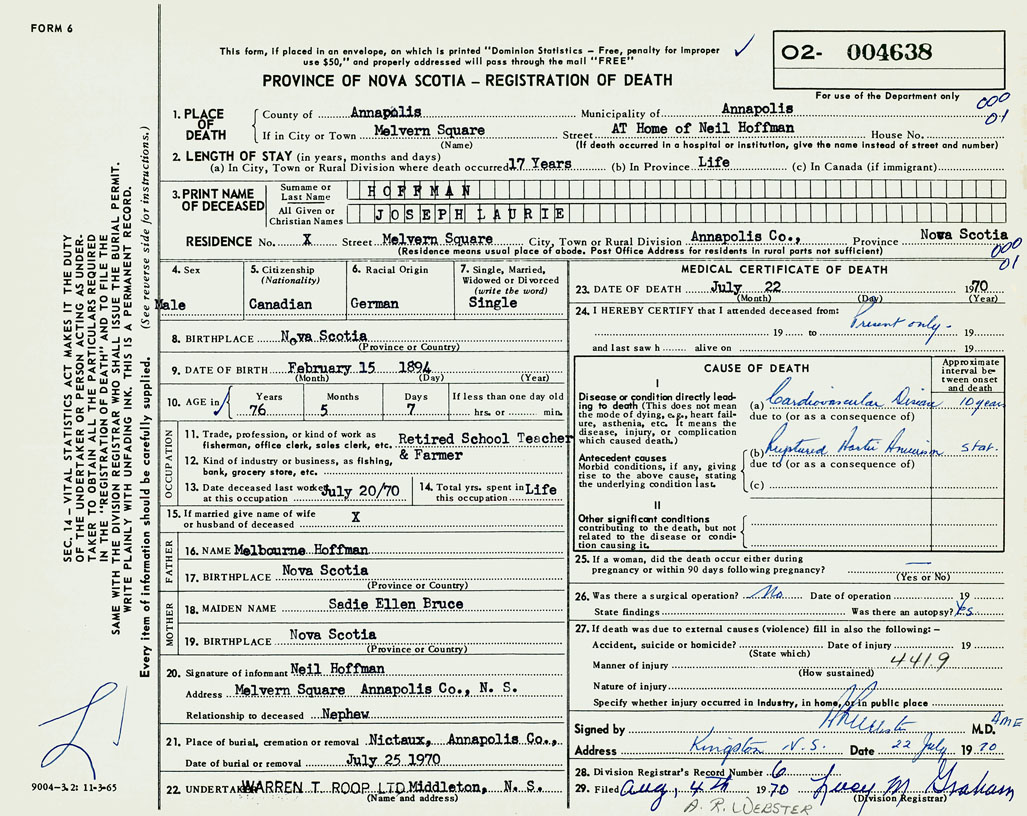 FORM 6
This form, if placed in an envelope, on which is printed "Dominion Statistics – Free, penalty for improper
use $50," and properly addressed will pass through the mail "FREE"
PROVINCE OF NOVA SCOTIA – REGISTRATION OF DEATH
02- 004638
For use of the Department only
000
01
1. PLACE OF DEATH
County of Annapolis Municipality of Annapolis
If in City or Town Melvern Square Street AT Home of Neil Hoffman House No.
(Name) (If death occurred in a hospital or institution, give the name instead of street and number)
2. LENGTH OF STAY (in years, months and days)
(a) In City, Town or Rural Division where death occurred 17 Years (b) In Province Life (c) In Canada (if immigrant)
3. PRINT NAME OF DECEASED
Surname or Last Name HOFFMAN
All Given or Christian Names JOSEPH LAURIE
RESIDENCE No. X Street Melvern Square City, Town or Rural Division Annapolis Co., Province Nova Scotia
(Residence means usual place of abode. Post Office Address for residents in rural parts not sufficient)
000
01
4. Sex
Male
5. Citizenship
(Nationality)
Canadian
6. Racial Origin
German
7. Single, Married,
Widowed or Divorced
(write the word)
Single
8. BIRTHPLACE Nova Scotia
(Province or Country)
9. DATE OF BIRTH February 15 1894
(Month) (Day) (Year)
10. AGE in
Years Months Days If less than one day old
76 5 7 hrs. or min.
OCCUPATION
11. Trade, profession, or kind of work as
fisherman, office clerk, sales clerk, etc.
Retired School Teacher
& Farmer
12. Kind of industry or business, as fishing,
bank, grocery store, etc.
13. Date deceased last worked
at this occupation July 20/70
14. Total yrs. spent in
this occupation Life
15. If married give name of wife
or husband of deceased X
FATHER
16. NAME Melbourne Hoffman
17. BIRTHPLACE Nova Scotia
(Province or Country)
MOTHER
18. MAIDEN NAME Sadie Ellen Bruce
19. BIRTHPLACE Nova Scotia
(Province or Country)
20. Signature of informant Neil Hoffman
Address Melvern Square Annapolis Co., N. S.
Relationship to deceased Nephew
21. Place of burial, cremation or removal Nictaux, Annapolis Co.,
Date of burial or removal July 25 1970
22. UNDERTAKER WARREN T. ROOP LTD Middleton, N. S.
(Name and address)
MEDICAL CERTIFICATE OF DEATH
23. DATE OF DEATH July 22 1970
(Month) (Day) (Year)
24. I HEREBY CERTIFY that I attended deceased from:
Present only.
19 to 19
and last saw h alive on 19
CAUSE OF DEATH
Approximate
interval be-
tween onset
and death
I
Disease or condition directly lead-
ing to death (This does not mean
the mode of dying, e.g., heart fail-
ure, asthenia, etc. It means the
disease, injury, or complication
which caused death.)
(a) Cardiovascular Disease 10 years
due to (or as a consequence of)
Antecedent causes
Morbid conditions, if any, giving
rise to the above cause, stating
the underlying condition last.
(b) Ruptured Aortic Aneurism stat.
due to (or as a consequence of)
(c)
II
Other significant conditions
contributing to the death, but not
related to the disease or condi-
tion causing it.
25. If a woman, did the death occur either during
pregnancy or within 90 days following pregnancy? —
(Yes or No)
26. Was there a surgical operation? No Date of operation 19
State findings Was there an autopsy? Yes
27. If death was due to external causes (violence) fill in also the following: –
Accident, suicide or homicide? Date of injury 19
(State which)
Manner of injury 4419
(How sustained)
Nature of injury
Specify whether injury occurred in Industry, in home, or in public place
Signed by Webster M.D. AME
Address Kingston N.S. Date 22 July 1970
28. Division Registrar's Record Number 6
29. Filed Aug. 4th 1970 Lucy M Graham
(Division Registrar)
A. R. WEBSTER
SEC. 14 – VITAL STATISTICS ACT MAKES IT THE DUTY
OF THE UNDERTAKER OR PERSON ACTING AS UNDER-
TAKER TO OBTAIN ALL THE PARTICULARS REQUIRED
IN THE "REGISTRATION OF DEATH" AND TO FILE THE
SAME WITH THE DIVISION REGISTRAR WHO SHALL ISSUE THE BURIAL PERMIT.
WRITE PLAINLY WITH UNFADING INK. THIS IS A PERMANENT RECORD.
Every item of information should be carefully supplied. (See reverse side for instructions.)
9004-3.2: 11-3-65